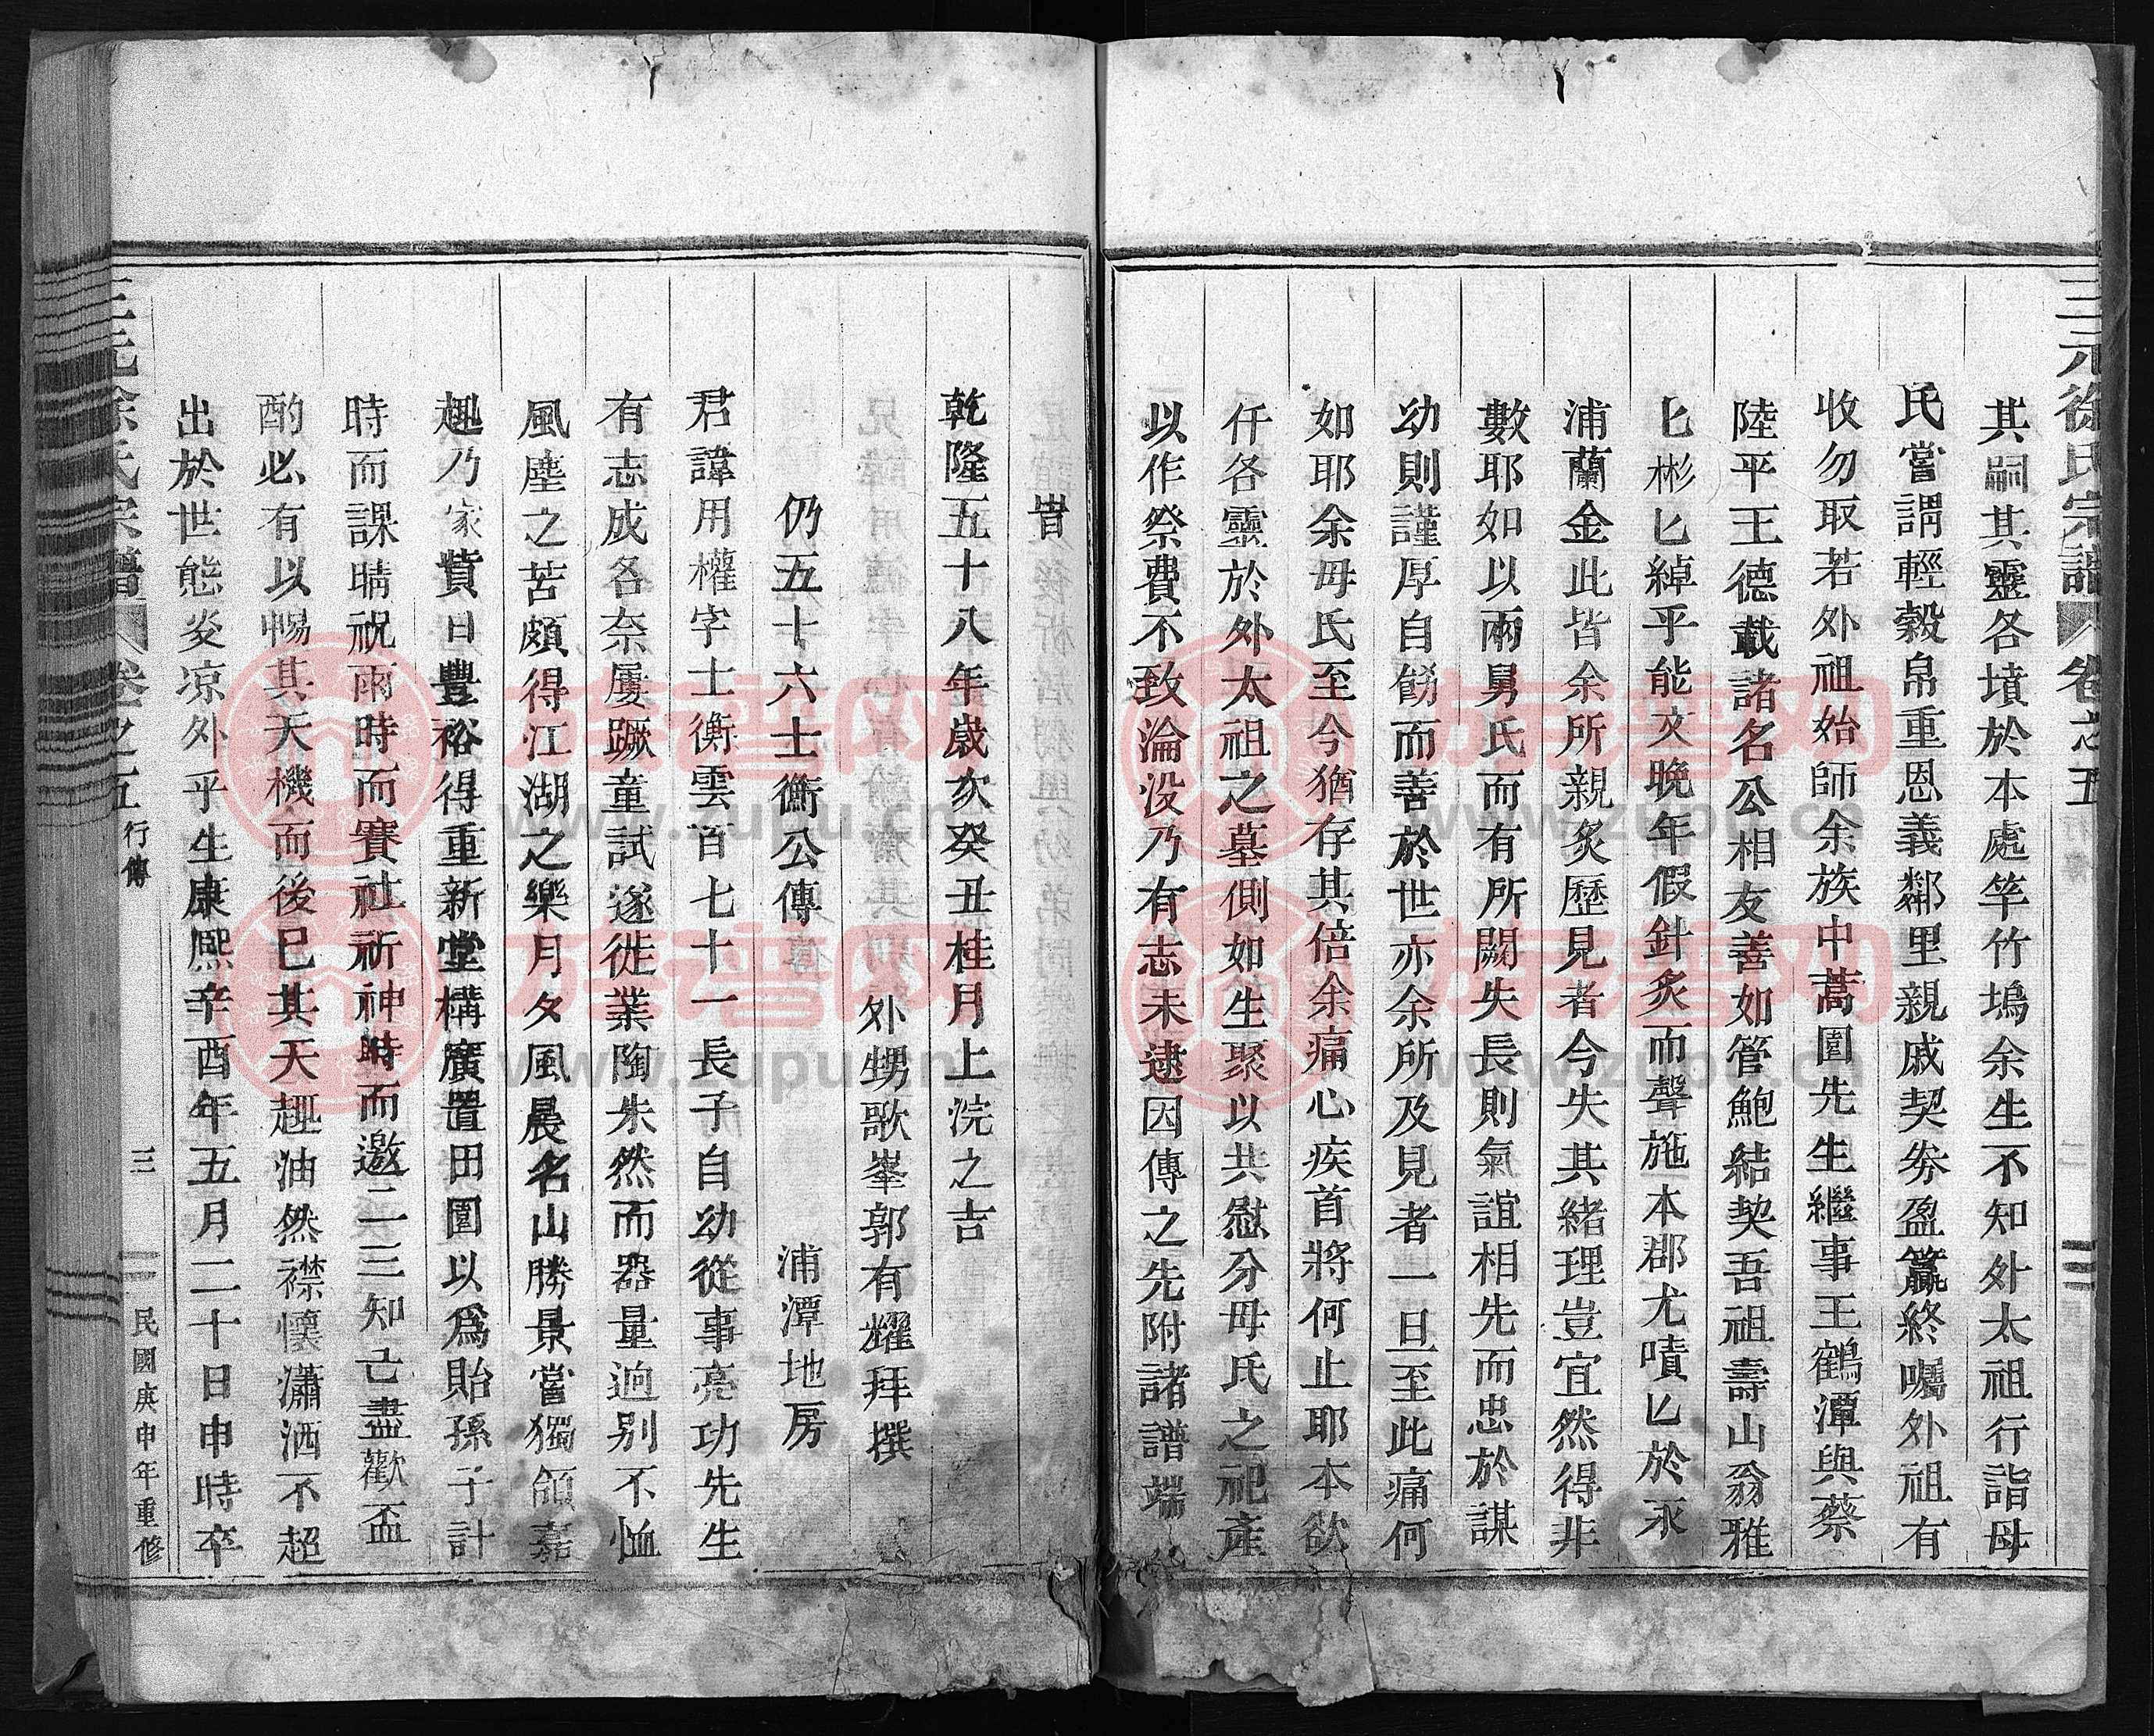 三元徐氏宗譜 卷之五
其嗣其靈各墳於本處竿竹塢余生不知外太祖行詣母
氏嘗謂輕穀帛重恩義鄰里親戚契劵盈籯終囑外祖有
收勿取若外祖始師余族中蒿園先生繼事王鶴潭與蔡
陸平王德載諸名公相友善如管鮑結契吾祖壽山翁雅
匕彬匕綽乎能文晚年假針炙而聲施本郡尤嘖匕於永
浦蘭金此皆余所親炙歷見者今失其緒理豈宜然得非
數耶如以兩舅氏而有所闕失長則氣誼相先而忠於謀
幼則謹厚自飭而善於世亦余所及見者一旦至此痛何
如耶余母氏至今猶存其倍余痛心疾首將何止耶本欲
仟各靈於外太祖之墓側如生聚以共慰分母氏之祀產
以作祭費不致淪没乃有志未逮因傳之先附諸譜端
旹
乾隆五十八年歲次癸丑桂月上浣之吉
外甥歌峯郭有耀拜撰
仍五十六士衡公傳 浦潭地房
君諱用權字士衡雲百七十一長子自幼從事亮功先生
有志成名奈屢蹶童試遂徙業陶朱然而器量逈别不恤
風塵之苦頗得江湖之樂月夕風晨名山勝景當獨領嘉
趣乃家貲日豐裕得重新堂構廣置田園以爲貽孫子計
時而課晴祝雨時而賽社祈神時而邀二三知己盡歡盃
酌必有以暢其天機而後已其天趣油然襟懷瀟洒不超
出於世態炎凉外乎生康熙辛酉年五月二十日申時卒
三元徐氏宗譜 卷之五 行傳 三 民國庚申年重修
族谱网
www.zupu.cn
族谱网
www.zupu.cn
族谱网
www.zupu.cn
族谱网
www.zupu.cn